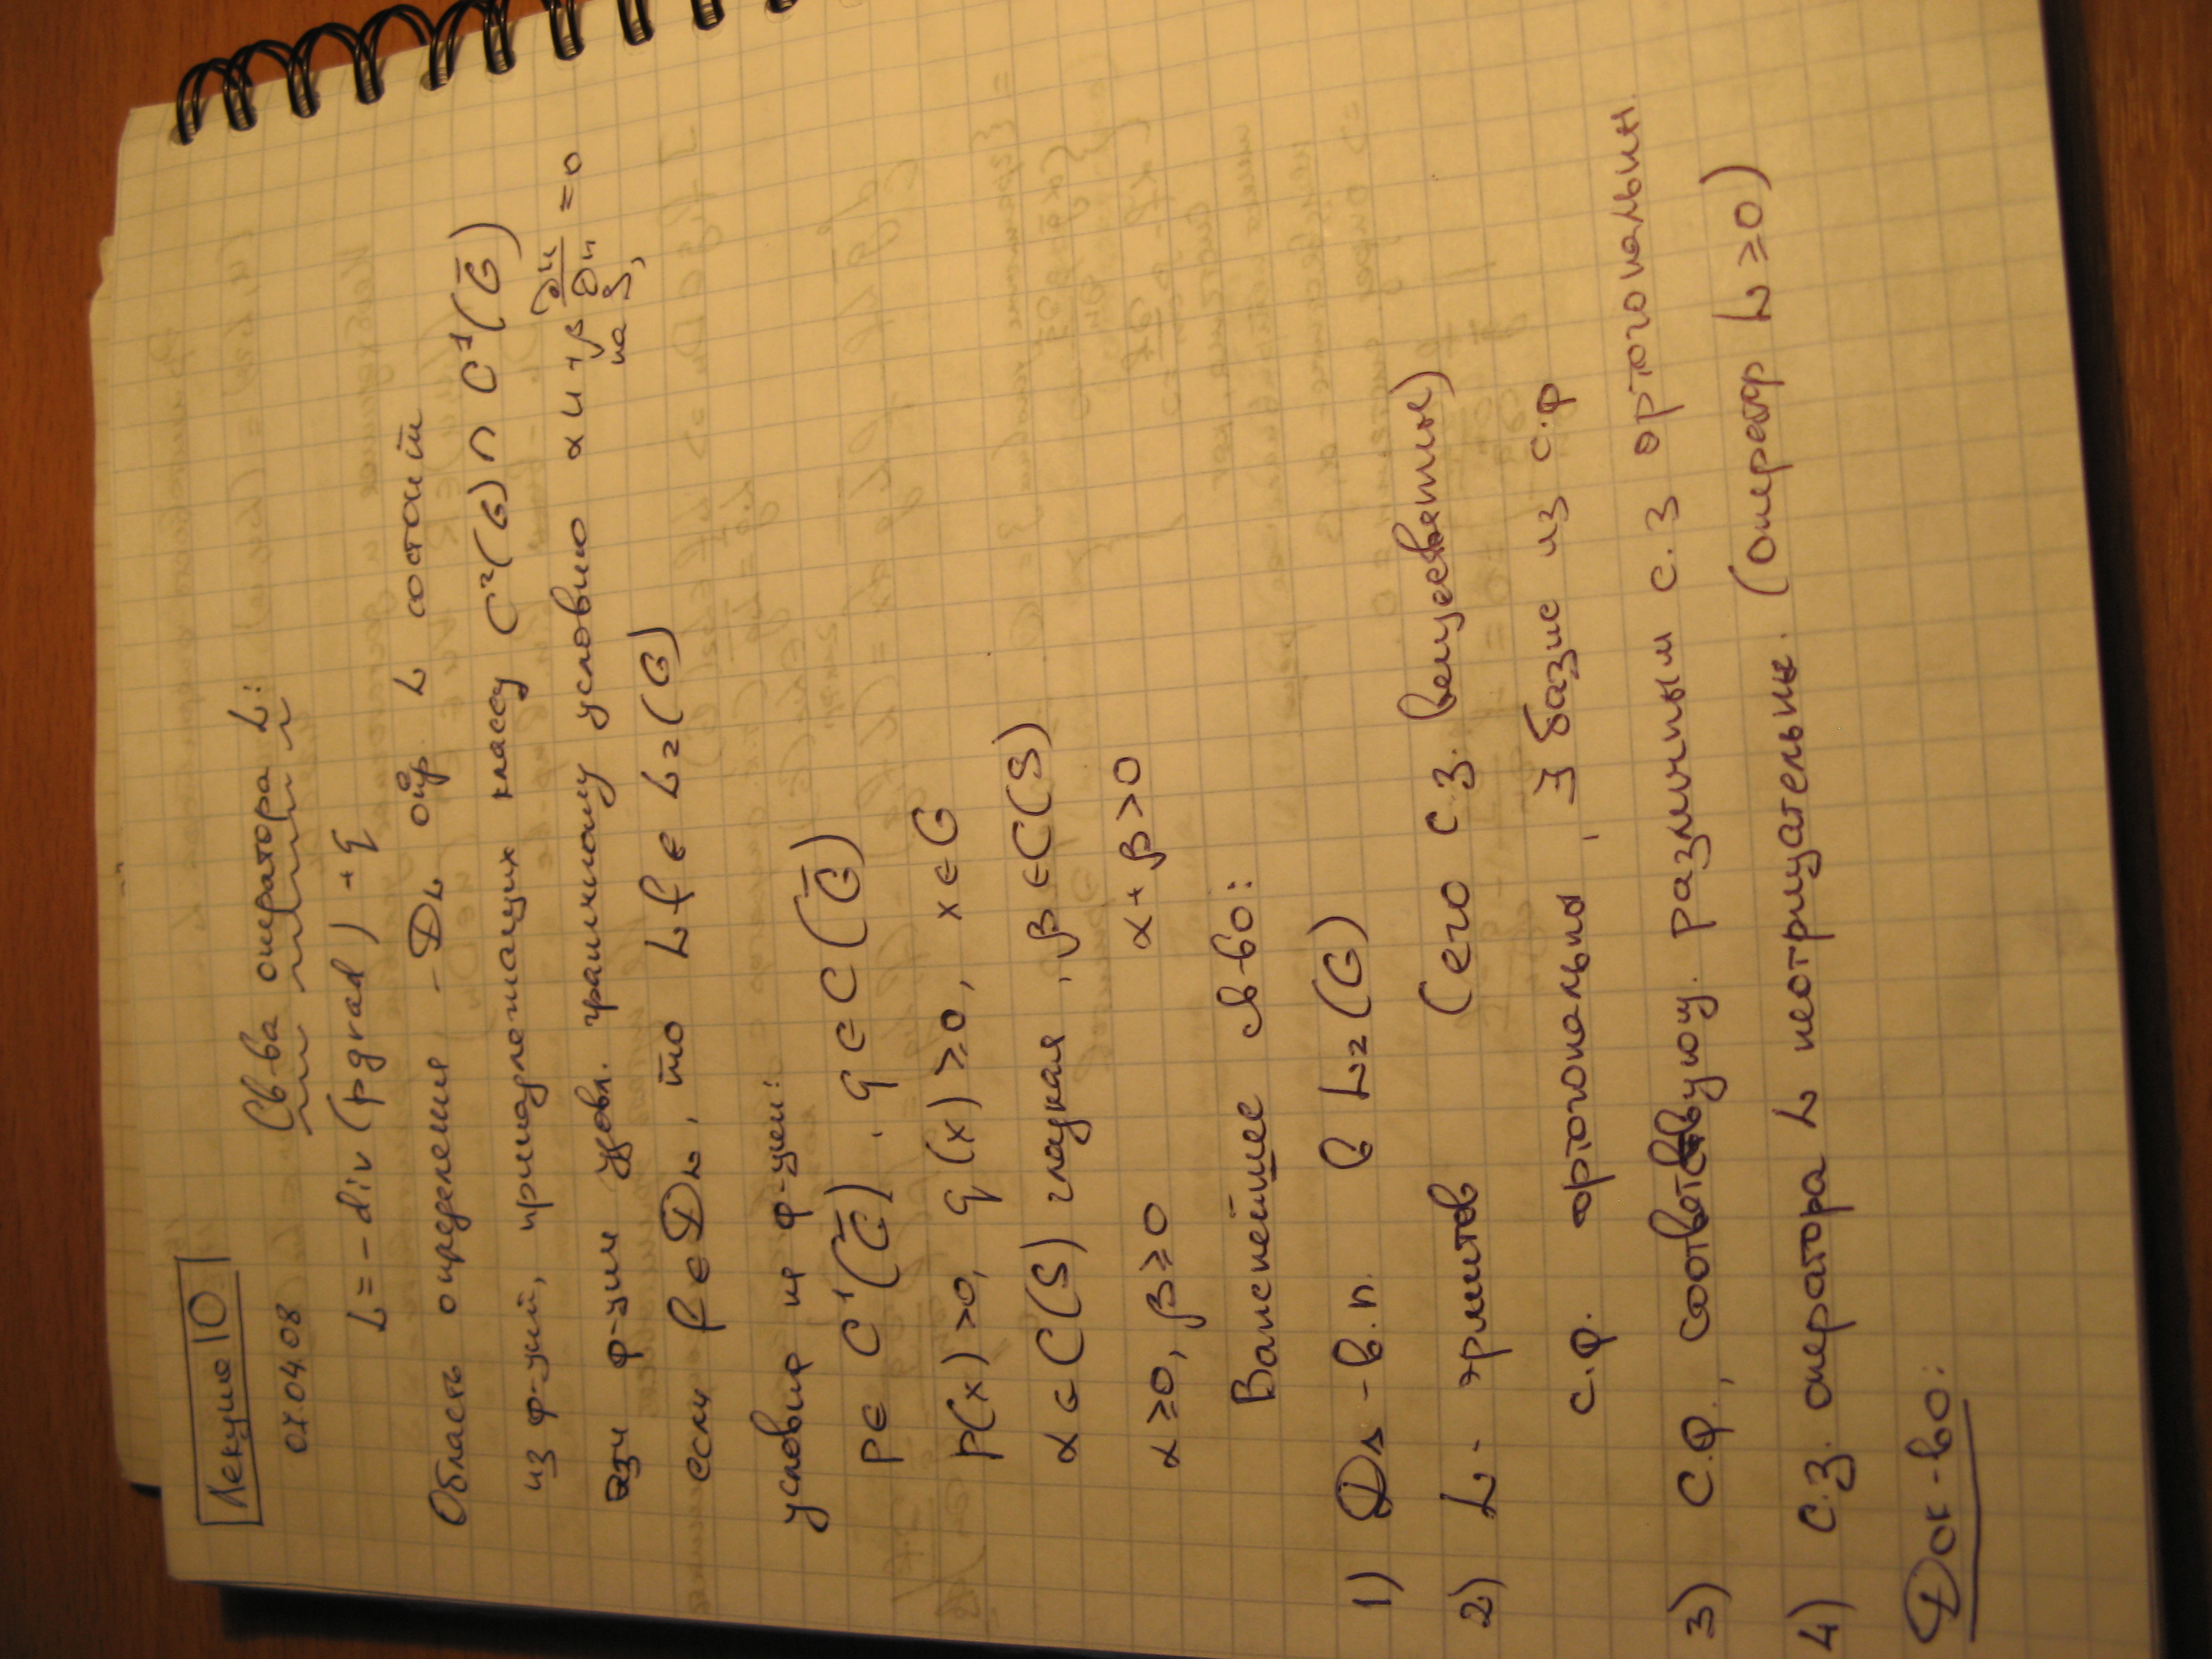 Лекция 10
07.04.08
Св-ва оператора L:
L = - div (p grad) + q
Область определения - D_L опр. L состоит
из ф-ций, принадлежащих классу C²(G) ∩ C¹(G̅)
эти ф-ции удовл. граничному условию αu + β ∂u/∂n = 0
на S,
если f ∈ D_L, то Lf ∈ L₂(G)
условия на ф-ции:
p ∈ C¹(G̅), q ∈ C(G̅)
p(x) > 0, q(x) ≥ 0, x ∈ G
α ∈ C(S) гладкая, β ∈ C(S)
α ≥ 0, β ≥ 0 α + β > 0
Важнейшее св-во:
1) D_L - в.п. в L₂(G)
2) L - эрмитов (его с.з. вещественные)
с.ф. ортогональны, ∃ базис из с.ф
3) с.ф., соответствующ. различным с.з ортогональн.
4) с.з. оператора L неотрицательны. (оператор L ≥ 0)
Док-во: